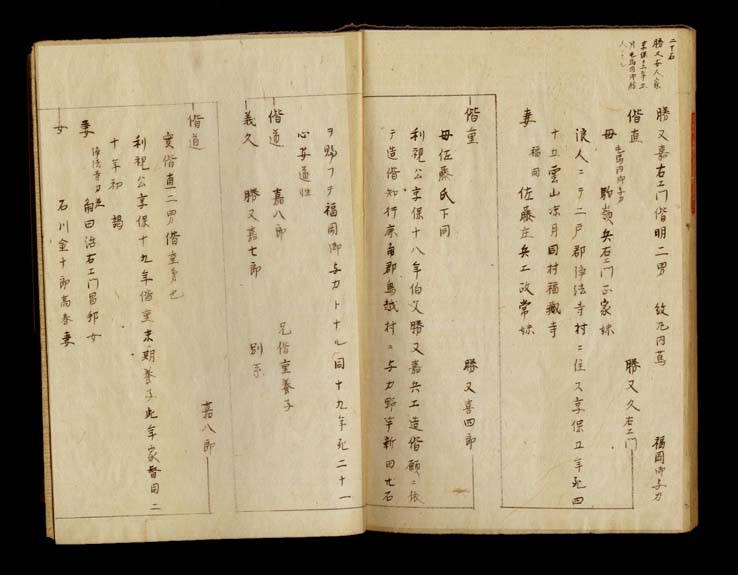 二十石
勝又嘉人家
享保十三年
勝又嘉右エ門偕明二男　紋丸内蔦　福岡御与力
偕直　勝又久右エ門
母　駒嶺兵右エ門正家妹
浪人ニテ二戸郡浄法寺村ニ住ス享保五年死四
十五雲山凉月同村福蔵寺
妻　福岡　佐藤庄兵エ政常妹
偕重　勝又喜四郎
母佐藤氏下同
利視公享保十八年伯父勝又嘉兵エ造偕願ニ依
テ造偕知行鹿角郡鳥越村ニ与力野竿新田七石
ヲ賜フテ福岡御与力トナル同十九年死二十一
心安道性
偕道　嘉八郎　兄偕重養子
義久　勝又嘉七郎　別系
偕道　嘉八郎
実偕直二男偕重弟也
利視公享保十九年偕重末期養子此年家督同二
十年初謁
妻　浄法寺刀五　角田治右エ門昌邦女
女　石川金十郎高春妻